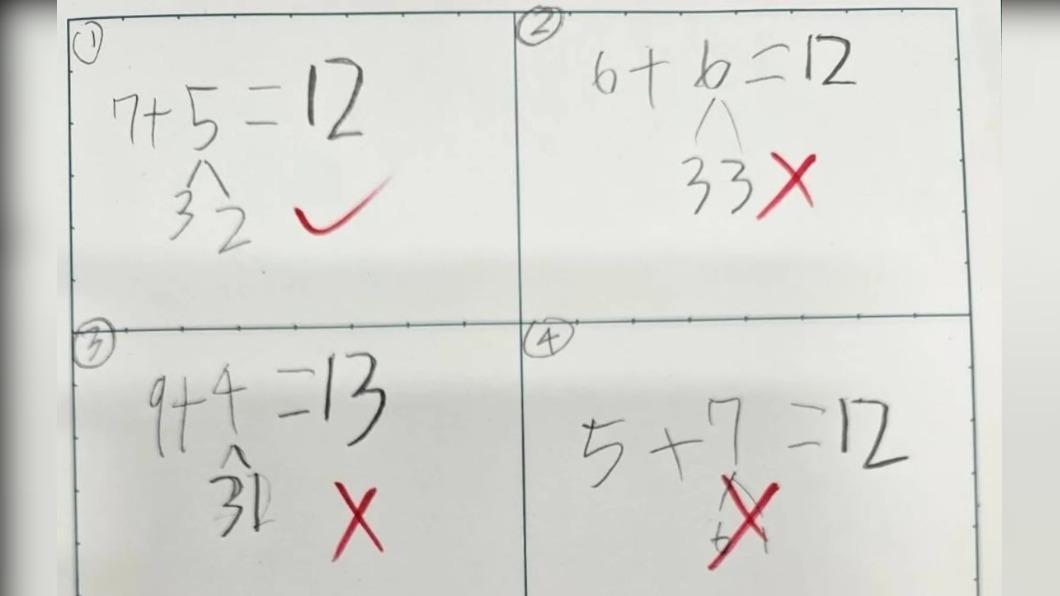 ①
7+5=12
3 2
②
6+6=12
3 3
③
9+4=13
3 1
④
5+7=12
6 1